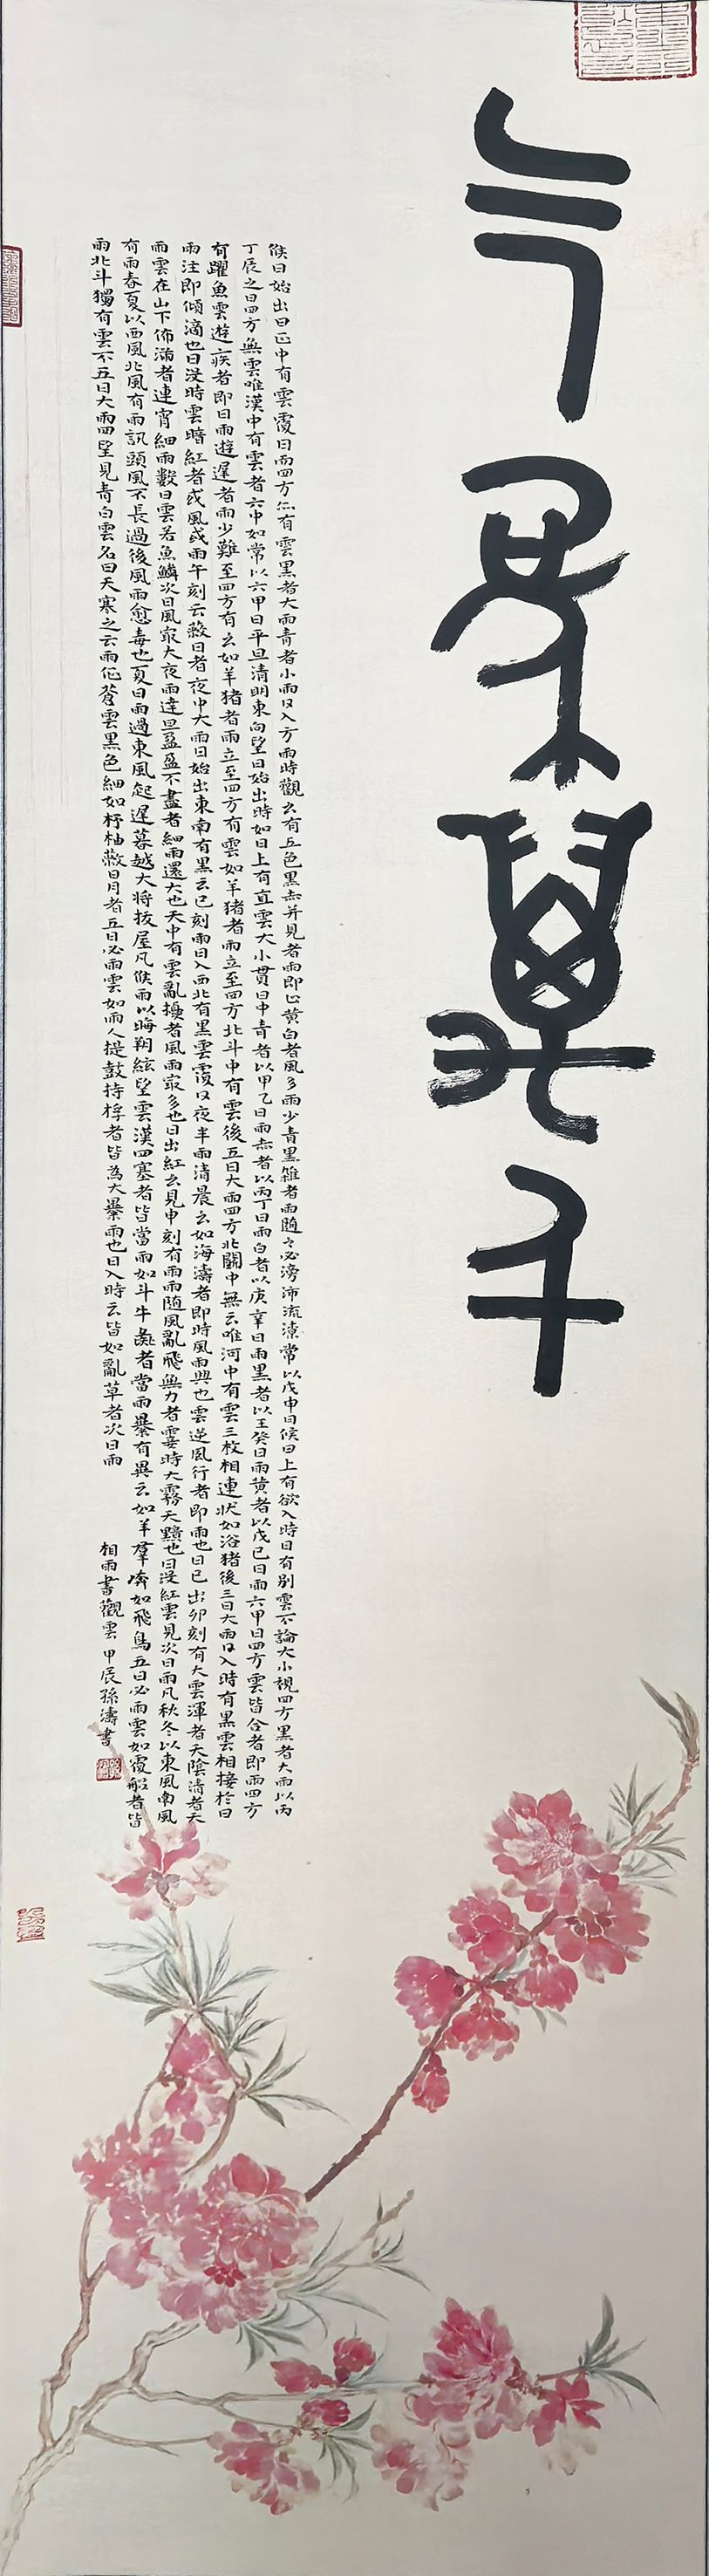 候日始出日正中有雲覆日而四方亦有雲黑者大雨青者小雨日入方雨時觀云有五色黑赤并見者雨即止黃白者風多雨少青黑雜者雨隨之必滂沛流潦常以戊申日候日上有欲入時日有別雲不論大小視四方黑者大雨以丙
丁辰之日四方無雲唯漢中有雲者六中如常以六甲日平旦清明東向望日始出時如日上有直雲大小貫日中青者以甲乙日雨赤者以丙丁日雨白者以庚辛日雨黑者以王癸日雨黄者以戊己日雨六甲日四方雲皆合者即雨四方
有躍魚雲遊疾者即日雨遊遲者雨少難至四方有云如羊猪者雨立至四方有雲如羊猪者雨立至四方北斗中有雲後五日大雨四方北關中無云唯河中有雲三枚相連狀如浴猪後三日大雨日入時有黑雲相接於日
雨注即傾滴也日沒時雲暗紅者或風或雨午刻云蔽日者夜中大雨日始出東南有黑云巳刻雨日入西北有黑雲覆日夜半雨清晨云如海濤者即時風雨興也雲逆風行者即雨也日已出卯刻有大雲渾者天陰清者天
雨雲在山下佈滿者連宵細雨數日雲若魚鱗次日風最大夜雨達旦盈盈不盡者細雨還大也天中有雲亂擾者風雨最多也日出紅云見申刻有雨雨隨風亂飛無力者霎時大霧天黯也日沒紅雲見次日雨凡秋冬以東風南風
有雨春夏以西風北風有雨訊頭風不長過後風雨愈毒也夏日雨過東風起遲暮越大将拔屋凡候雨以晦朔絃望雲漢四塞者皆當雨如斗牛彘者當雨暴有異云如羊羣奔如飛鳥五日必雨雲如覆船者皆
雨北斗獨有雲不五日大雨四望見青白雲名曰天寒之云雨化蒼雲黑色細如杼柚蔽日月者五日必雨雲如雨人提鼓持桴者皆為大暴雨也日入時云皆如亂草者次日雨
相雨書觀雲 甲辰孫濤書